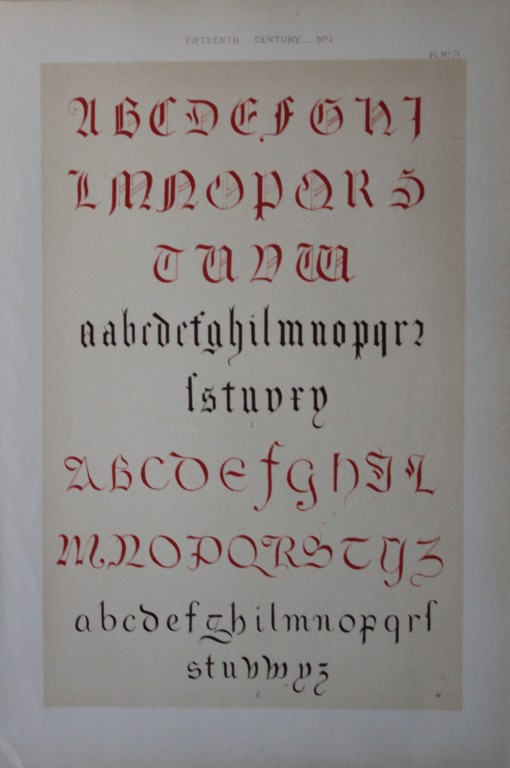 FIFTEENTH CENTURY. Nº1
PL. Nº 21
A B C D E F G H I
L M N O P Q R S
T U V W
a a b c d e f g h i l m n o p q r ꝛ
ſ s t u v x y
1
A B C D E f G h S L
M N O P Q R S T Y Z
a b c d e f g h i l m n o p q r ſ
s t u v w y z
2